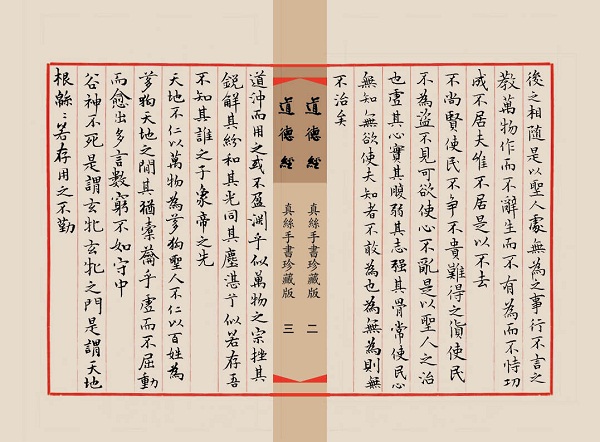 後之相隨是以聖人處無為之事行不言之
教萬物作而不辭生而不有為而不恃功
成不居夫唯不居是以不去
不尚賢使民不爭不貴難得之貨使民
不為盜不見可欲使心不亂是以聖人之治
也虛其心實其腹弱其志强其骨常使民心
無知無欲使夫知者不敢為也為無為則無
不治矣
道德經 真絲手書珍藏版 二
道德經 真絲手書珍藏版 三
道沖而用之或不盈渊乎似萬物之宗挫其
銳解其紛和其光同其塵湛兮似若存吾
不知其誰之子象帝之先
天地不仁以萬物為芻狗聖人不仁以百姓為
芻狗天地之間其猶橐籥乎虛而不屈動
而愈出多言數窮不如守中
谷神不死是謂玄牝玄牝之門是謂天地
根緜〻若存用之不勤